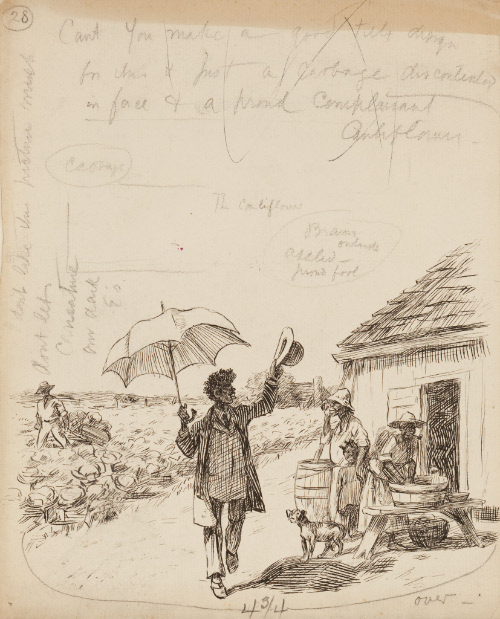 28
Cant You make a good title design
for this & just a Cabbage discontented
in face & a proud Complaisant
Cauliflower
Cabbage
The Cauliflower
Brains
proud fool
dont like this picture much
dont let
Caricature
our dark
over —
4 3/4